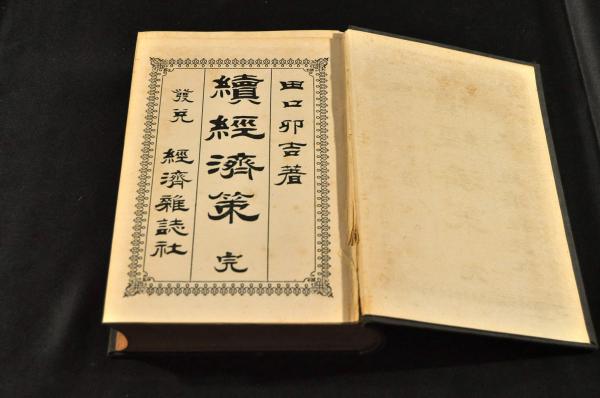 田口卯吉著
續經濟策 完
發兌 經濟雜誌社